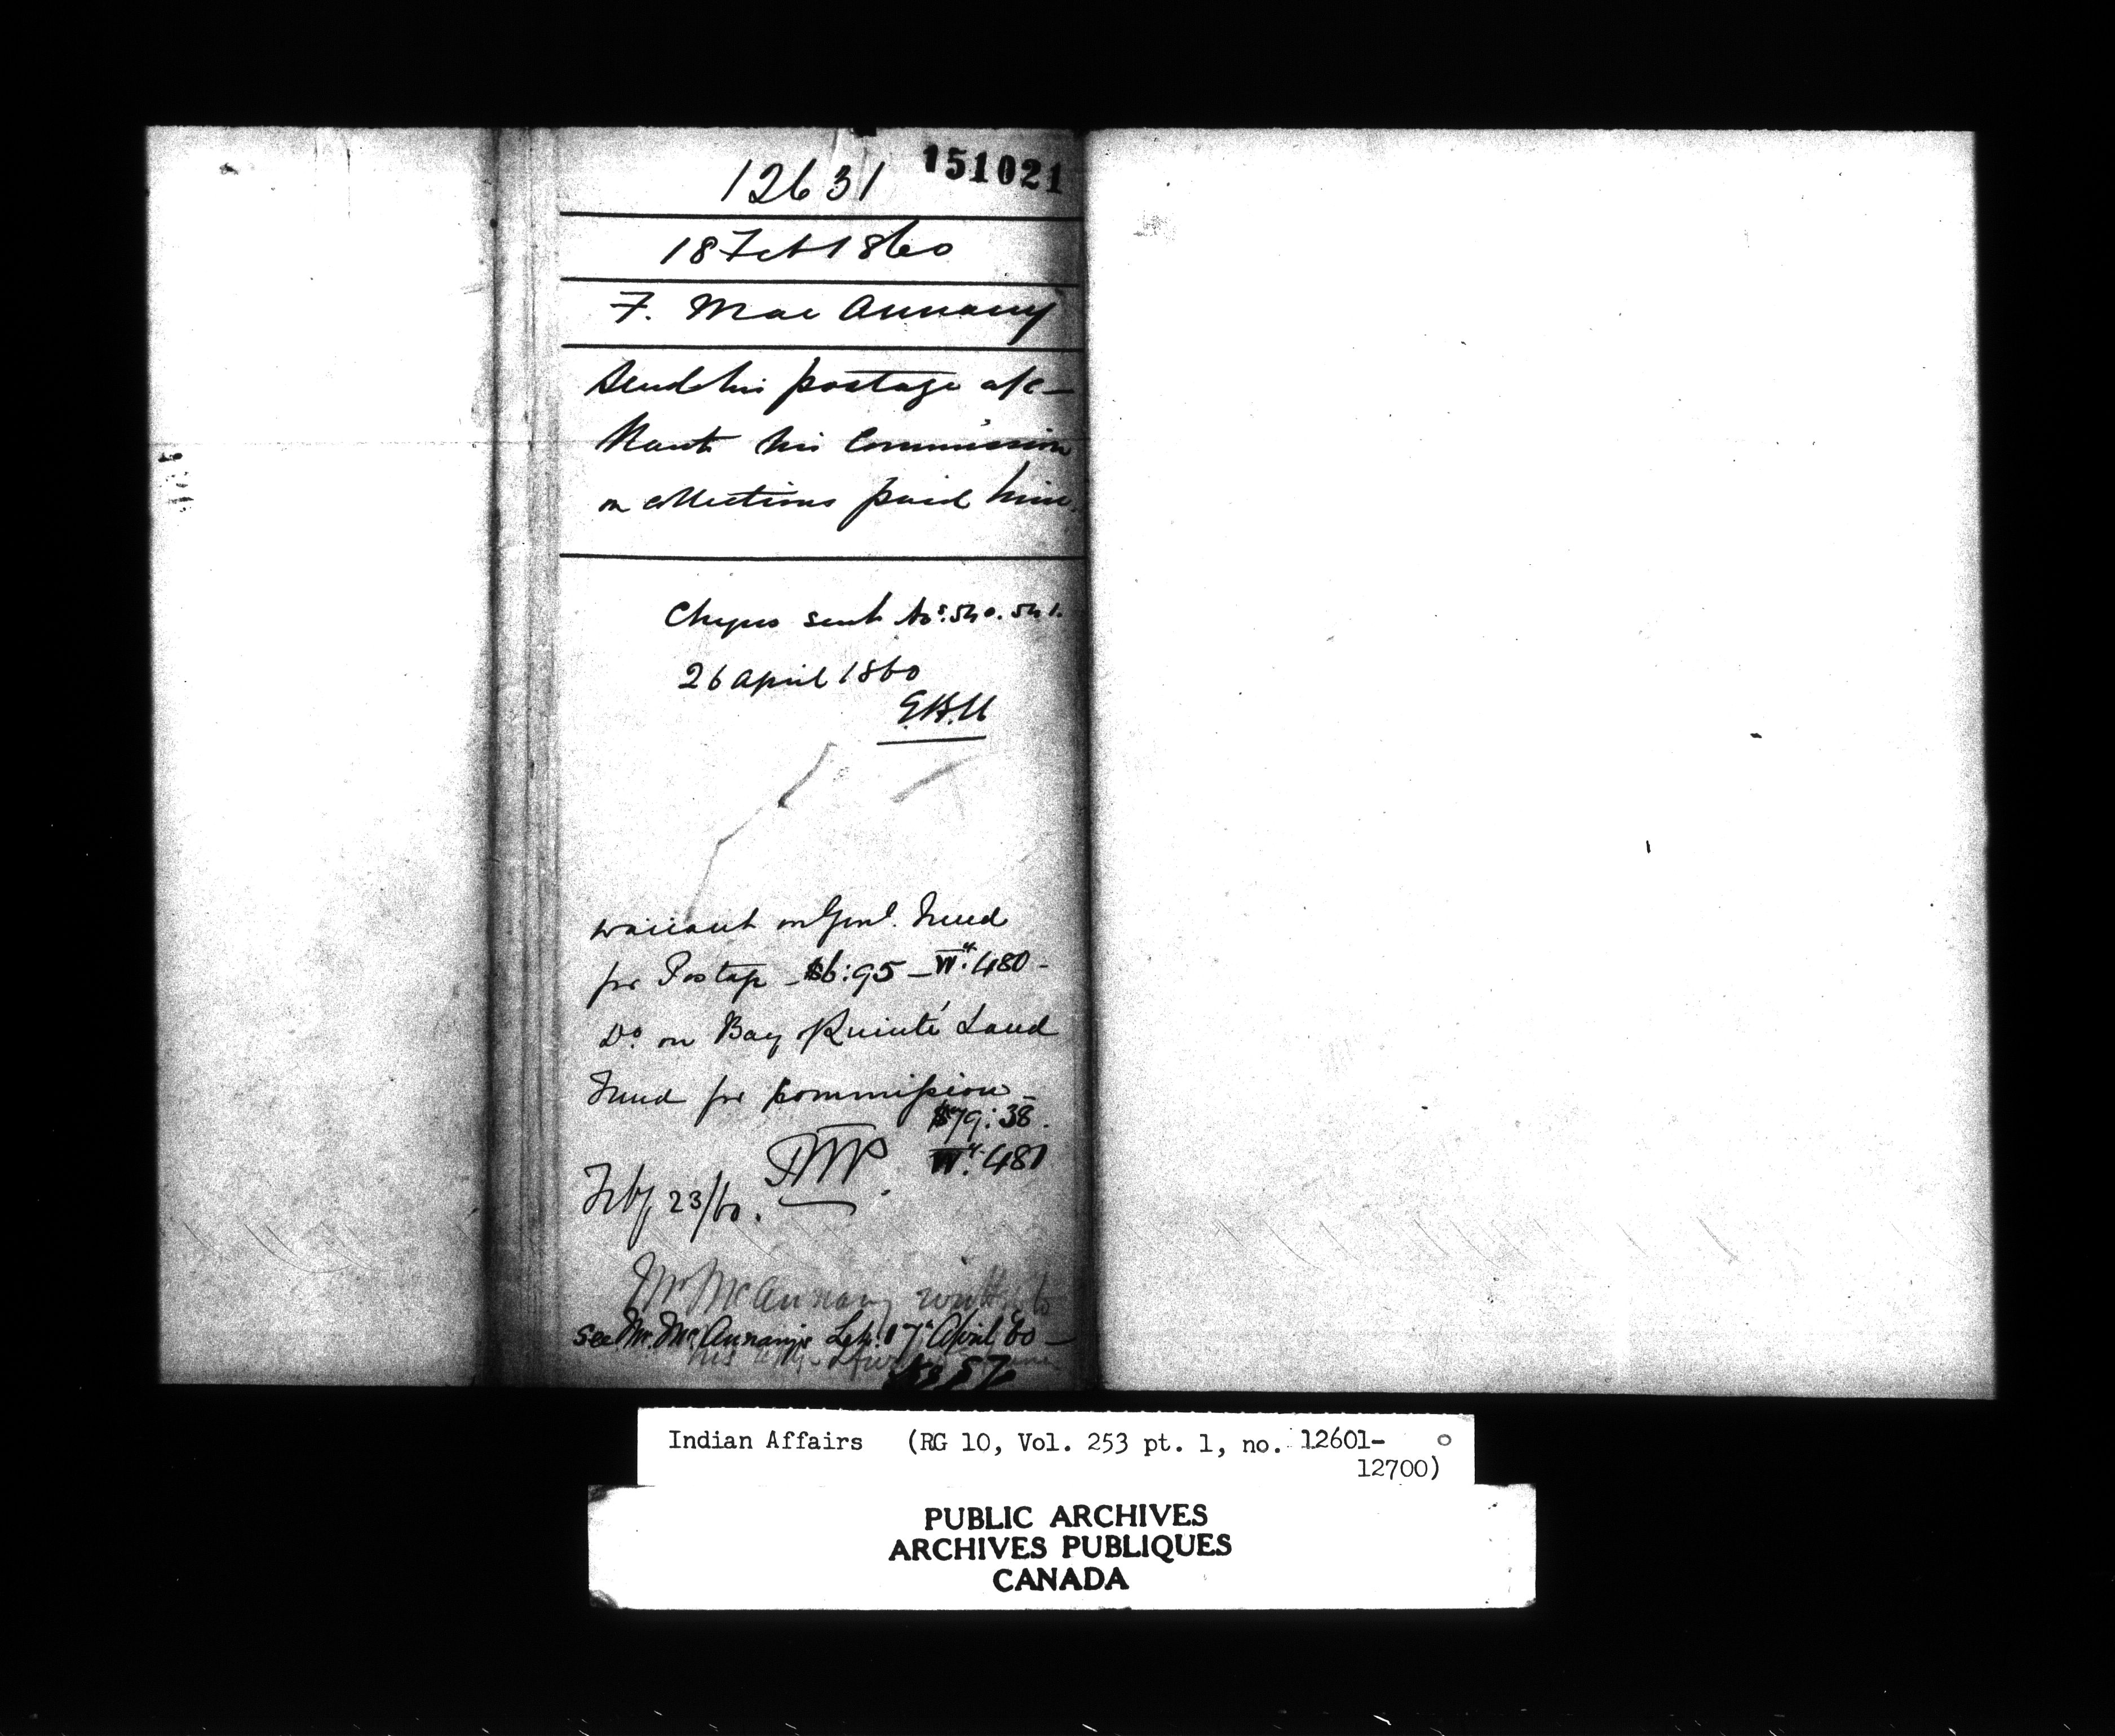 151021
12631
18 Feb 1860
F. MacAnnany
Sends his postage a/c –
Wants his Commission
on collections paid him.
Cheques sent Nos. 540. 541.
26 April 1860
warrant on Genl. Fund
for Postage – $6:95 – Wt. 480 –
Do. on Bay Quinté Land
Fund for Commission
$79:38.
Wt. 481
Feby 23/60.
Mr McAnnany
see Mr. McAnnany's Let. 17 April 60 –
Indian Affairs (RG 10, Vol. 253 pt. 1, no. 12601-
12700)
PUBLIC ARCHIVES
ARCHIVES PUBLIQUES
CANADA